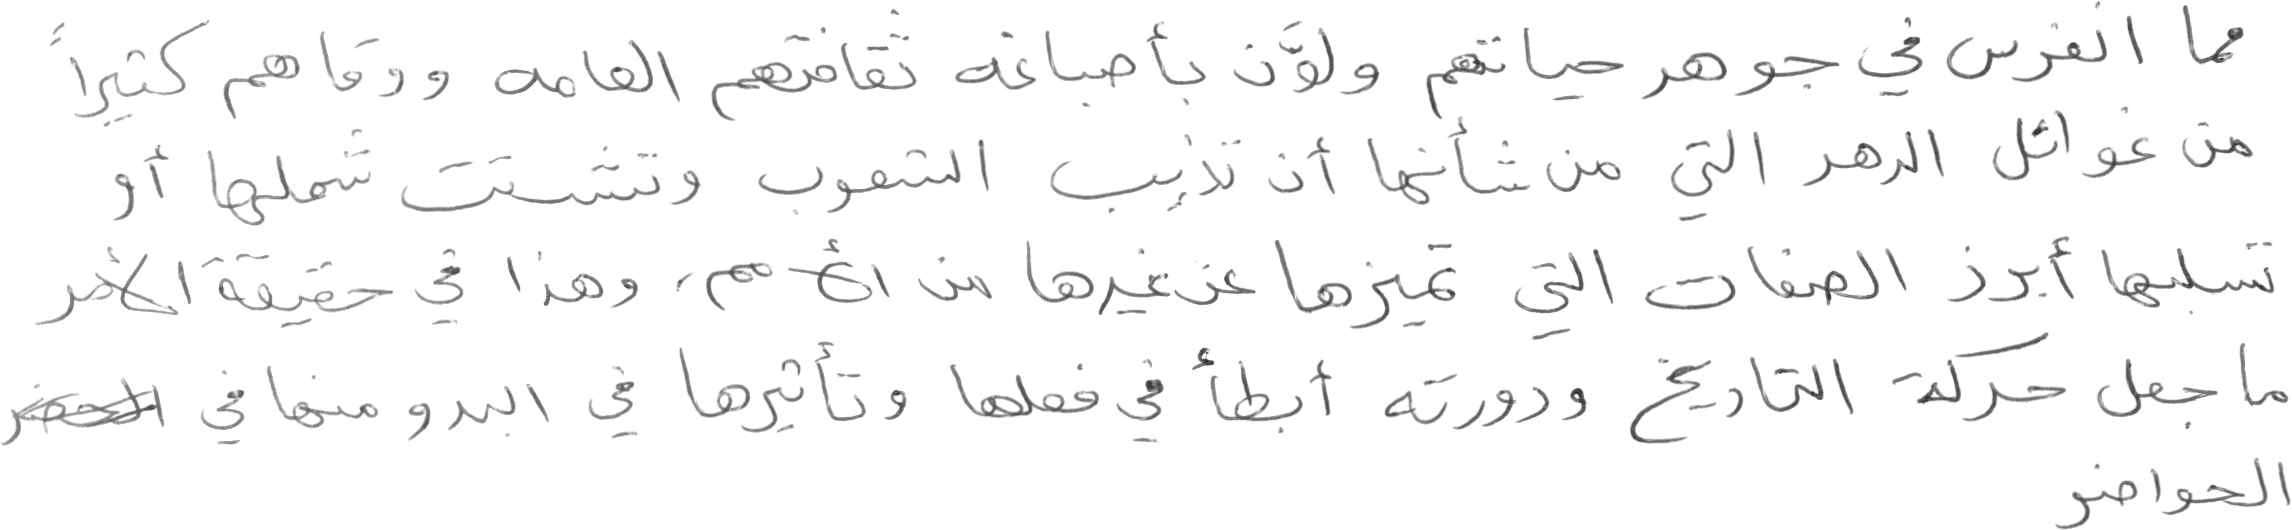 مما انغرس في جوهر حياتهم ولوَّن بأصباغه ثقافتهم العامه ووقاهم كثيراً
من غوائل الدهر التي من شأنها أن تذيب الشعوب وتشتت شملها أو
تسلبها أبرز الصفات التي تميزها عن غيرها من الأمم، وهذا في حقيقة الأمر
ما جعل حركة التاريخ ودورته أبطأ في فعلها وتأثيرها في البدو منها في
الحواضر